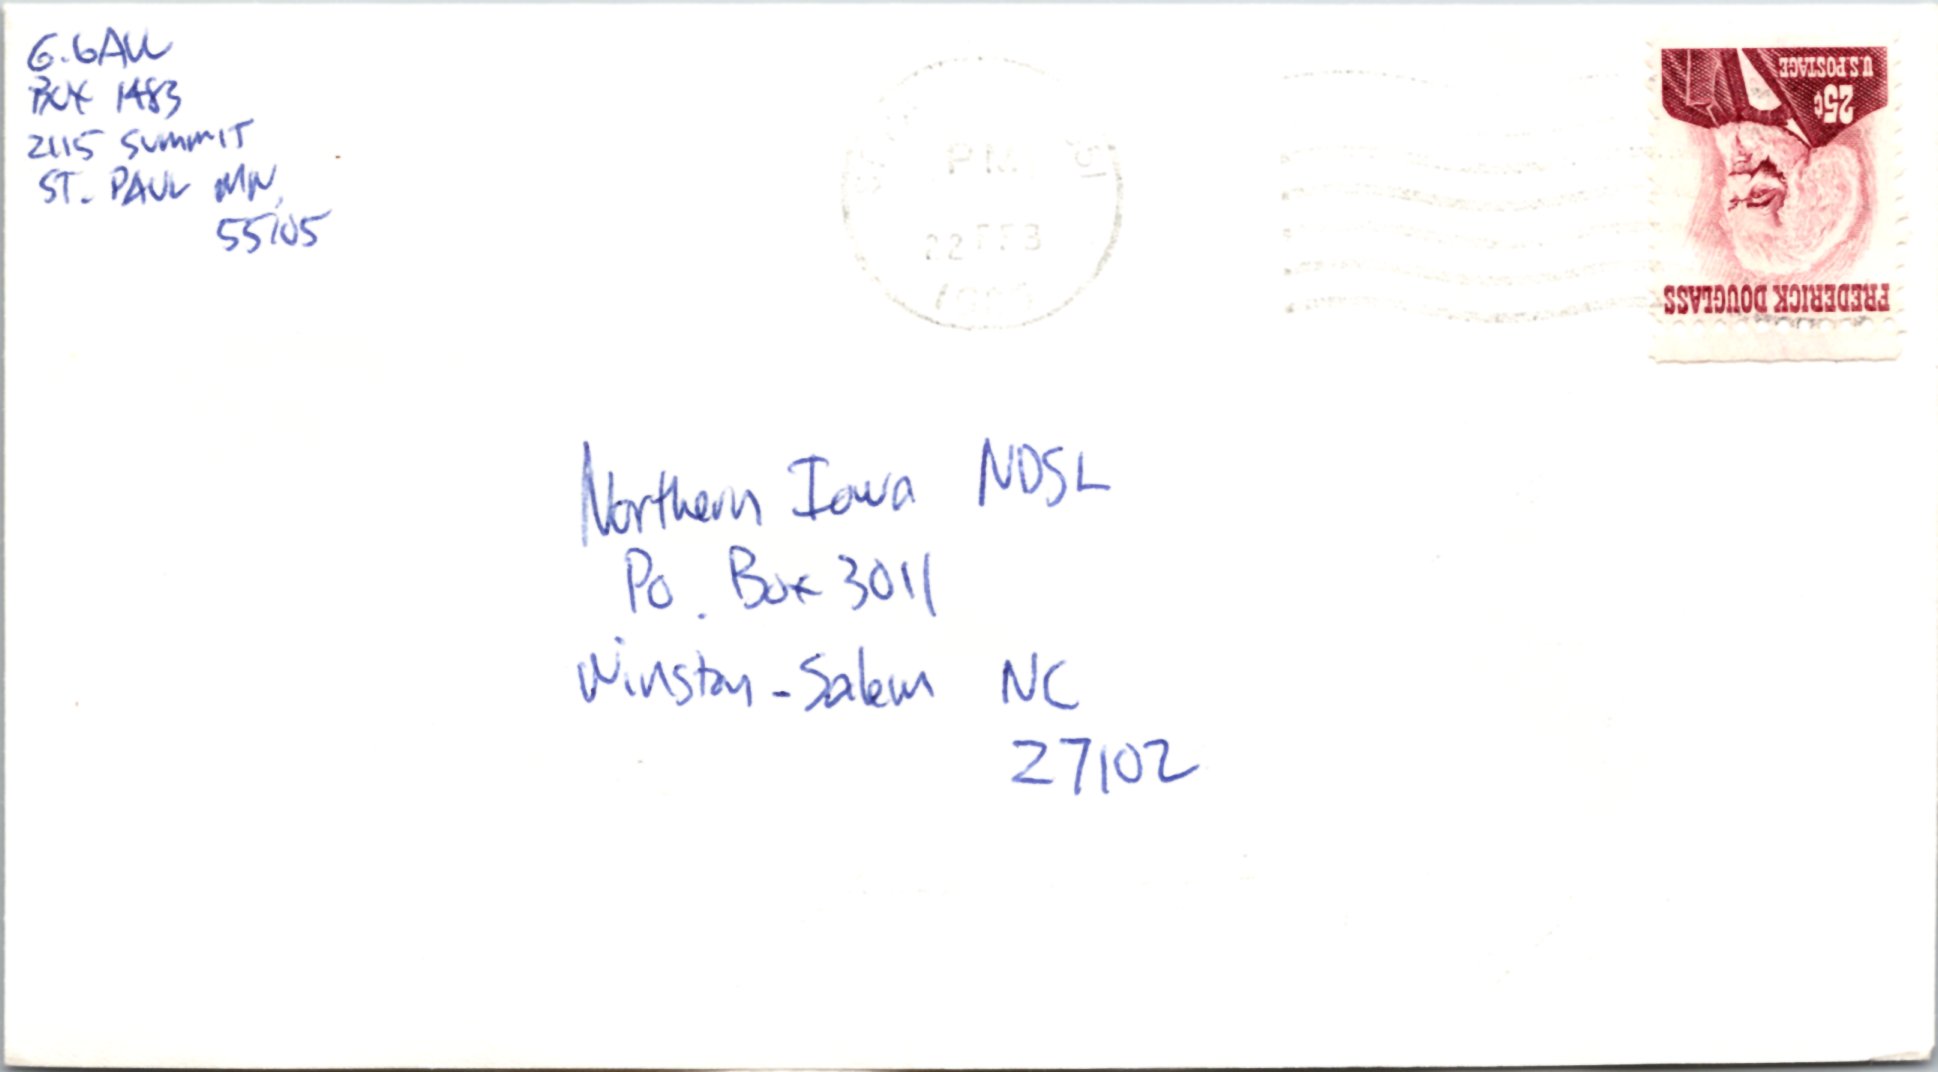 G. GALL
BOX 1483
2115 SUMMIT
ST. PAUL MN,
55105
PM
22 FEB
U.S. POSTAGE
25¢
FREDERICK DOUGLASS
Northern Iowa NDSL
Po. Box 3011
Winston-Salem NC
27102